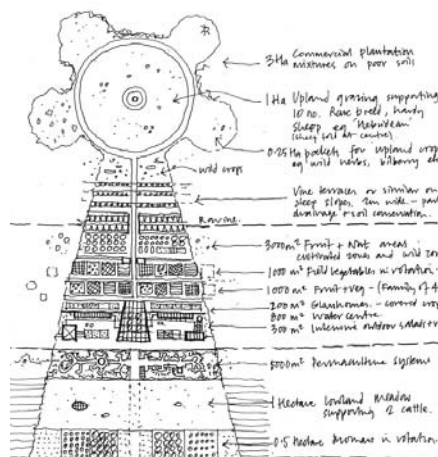 3 Ha Commercial plantation
mixtures on poor soils
1 Ha Upland grazing supporting
10 no. Rare breed, hardy
sheep eg 'Hebridean'
(sheep fold at centre)
0.25 Ha pockets for upland crop
eg wild herbs, bilberry etc
wild crops
Vine terraces or similar on
steep slopes, 2m wide -
drainage + soil conservation.
Ravine
3000m² Fruit + Nut areas
cultivated zones and wild zo
1000 m² Field Vegetables in rotation
1000 m² Fruit + Veg - (Family of 4
200 m² Glasshouses - covered cro
800 m² Water centre
300 m² Intensive outdoor salads +
5000m² Permaculture systems
1 Hectare lowland meadow
supporting 2 cattle.
0.5 Hectare in rotation